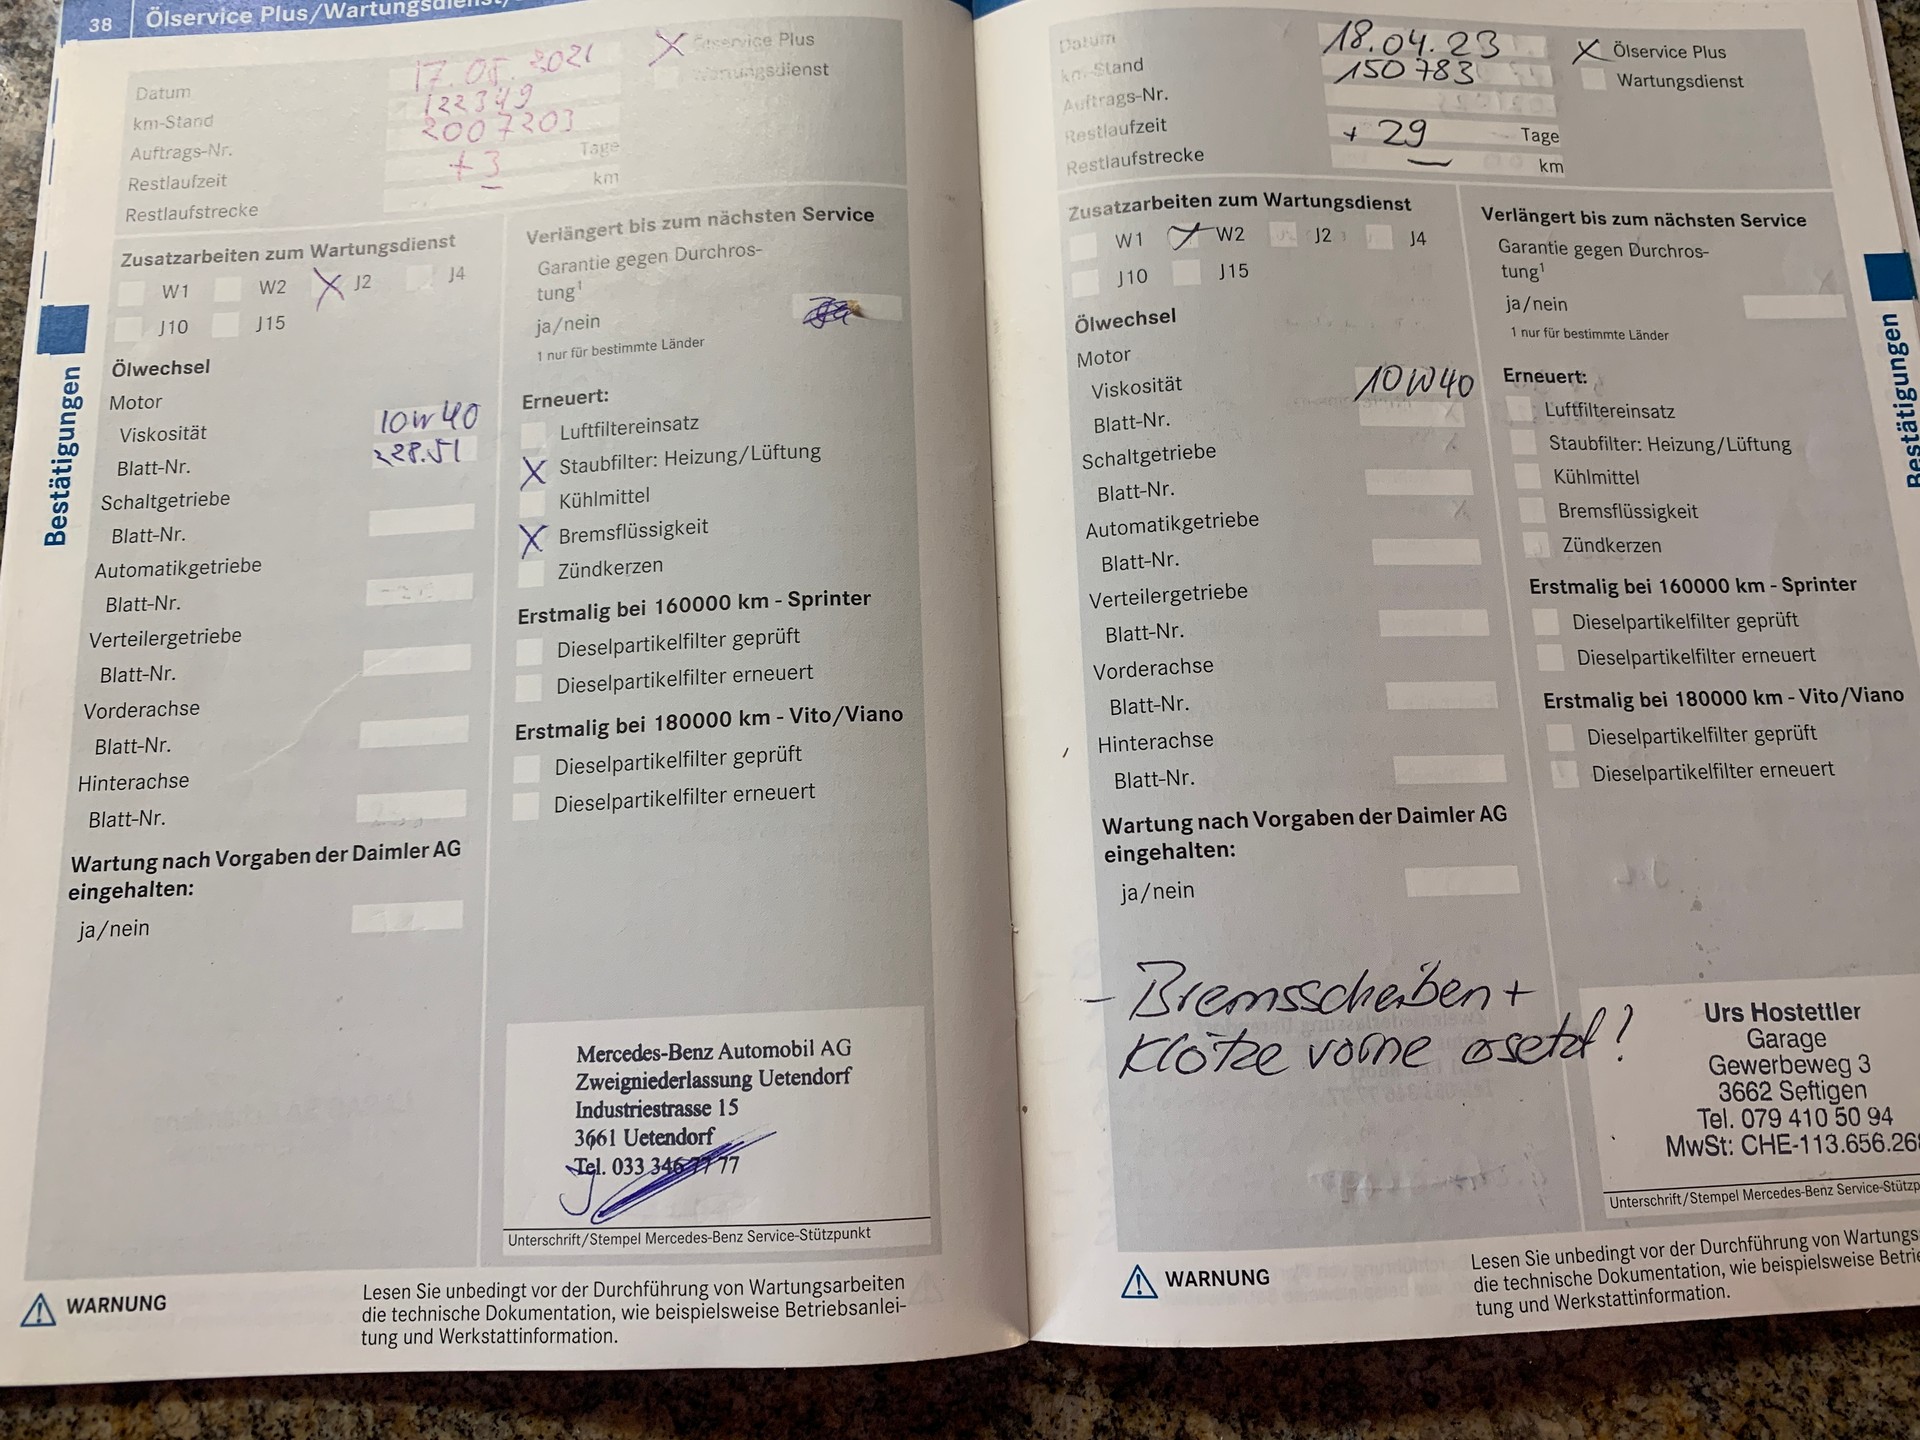 38 Ölservice Plus/Wartungsdienst/
Datum 17.05.2021
km-Stand 122349
Auftrags-Nr. 2007203
Restlaufzeit +3 Tage
Restlaufstrecke – km
X Ölservice Plus
Wartungsdienst
Zusatzarbeiten zum Wartungsdienst
W1 W2 X J2 J4
J10 J15
Ölwechsel
Motor
Viskosität 10W40
Blatt-Nr. 228.51
Schaltgetriebe
Blatt-Nr.
Automatikgetriebe
Blatt-Nr.
Verteilergetriebe
Blatt-Nr.
Vorderachse
Blatt-Nr.
Hinterachse
Blatt-Nr.
Wartung nach Vorgaben der Daimler AG
eingehalten:
ja/nein
Verlängert bis zum nächsten Service
Garantie gegen Durchros-
tung¹
ja/nein
1 nur für bestimmte Länder
Erneuert:
Luftfiltereinsatz
X Staubfilter: Heizung/Lüftung
Kühlmittel
X Bremsflüssigkeit
Zündkerzen
Erstmalig bei 160000 km - Sprinter
Dieselpartikelfilter geprüft
Dieselpartikelfilter erneuert
Erstmalig bei 180000 km - Vito/Viano
Dieselpartikelfilter geprüft
Dieselpartikelfilter erneuert
Mercedes-Benz Automobil AG
Zweigniederlassung Uetendorf
Industriestrasse 15
3661 Uetendorf
Tel. 033 346 77 77
Unterschrift/Stempel Mercedes-Benz Service-Stützpunkt
WARNUNG
Lesen Sie unbedingt vor der Durchführung von Wartungsarbeiten
die technische Dokumentation, wie beispielsweise Betriebsanlei-
tung und Werkstattinformation.
Bestätigungen
Datum 18.04.23
km-Stand 150783
Auftrags-Nr.
Restlaufzeit + 29 Tage
Restlaufstrecke – km
X Ölservice Plus
Wartungsdienst
Zusatzarbeiten zum Wartungsdienst
W1 X W2 J2 J4
J10 J15
Ölwechsel
Motor
Viskosität 10W40
Blatt-Nr.
Schaltgetriebe
Blatt-Nr.
Automatikgetriebe
Blatt-Nr.
Verteilergetriebe
Blatt-Nr.
Vorderachse
Blatt-Nr.
Hinterachse
Blatt-Nr.
Wartung nach Vorgaben der Daimler AG
eingehalten:
ja/nein
Verlängert bis zum nächsten Service
Garantie gegen Durchros-
tung¹
ja/nein
1 nur für bestimmte Länder
Erneuert:
Luftfiltereinsatz
Staubfilter: Heizung/Lüftung
Kühlmittel
Bremsflüssigkeit
Zündkerzen
Erstmalig bei 160000 km - Sprinter
Dieselpartikelfilter geprüft
Dieselpartikelfilter erneuert
Erstmalig bei 180000 km - Vito/Viano
Dieselpartikelfilter geprüft
Dieselpartikelfilter erneuert
- Bremsscheiben +
Klötze vorne ersetzt!
Urs Hostettler
Garage
Gewerbeweg 3
3662 Seftigen
Tel. 079 410 50 94
MwSt: CHE-113.656.26
Unterschrift/Stempel Mercedes-Benz Service-Stützp
WARNUNG
Lesen Sie unbedingt vor der Durchführung von Wartungs
die technische Dokumentation, wie beispielsweise Betrie
tung und Werkstattinformation.
Bestätigungen